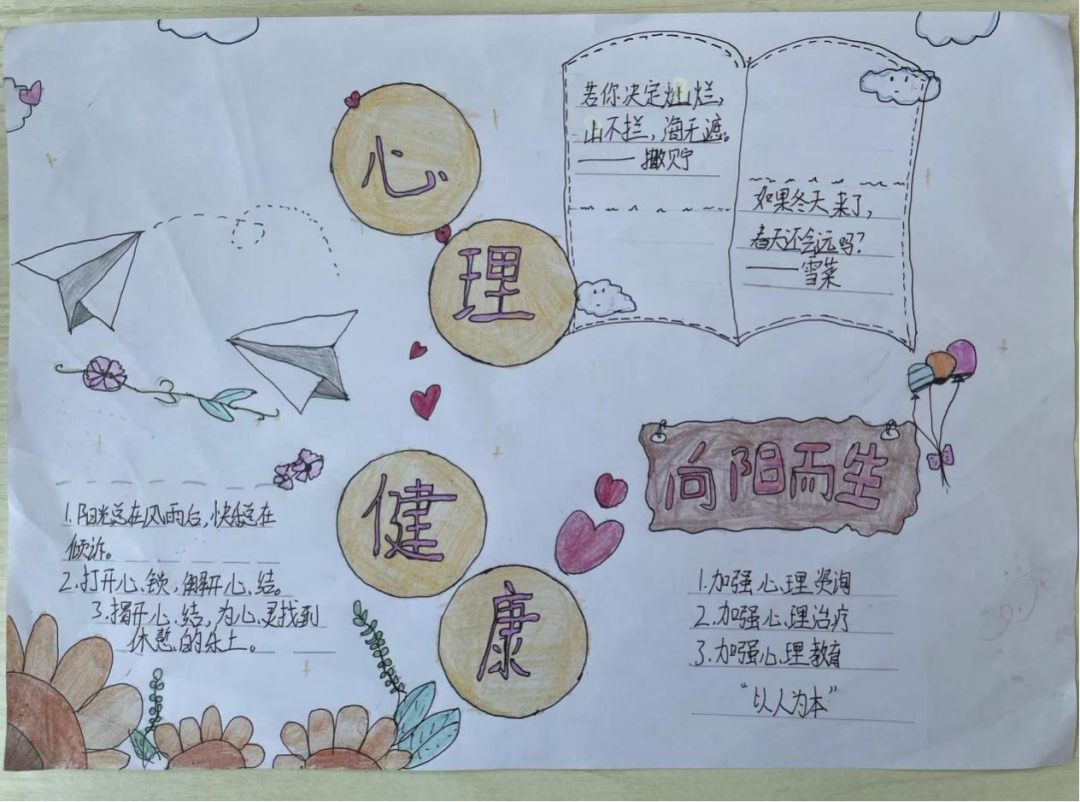 心
理
健
康
若你决定灿烂,
山不拦,海无遮。
——撒贝宁
如果冬天来了,
春天还会远吗?
——雪莱
向阳而生
1.阳光总在风雨后,快乐总在
倾诉。
2.打开心锁,解开心结。
3.揭开心结,为心灵找到
休憩的乐土。
1.加强心理资询
2.加强心理治疗
3.加强心理教育
“以人为本”